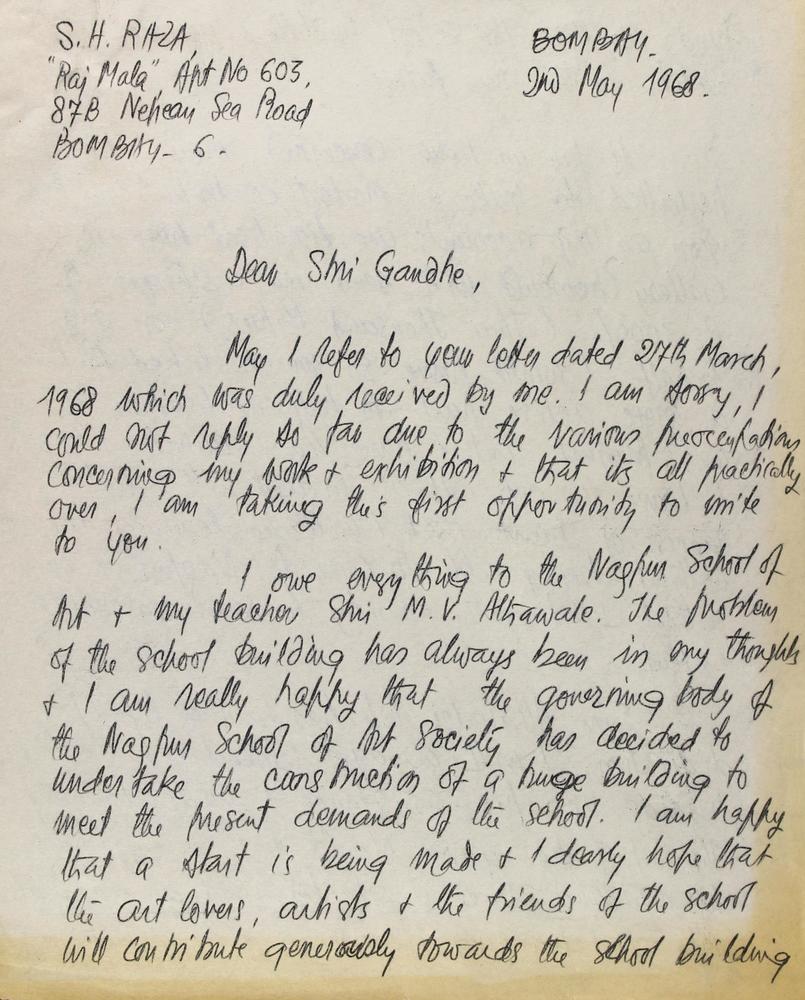 S. H. RAZA,
"Raj Mala", Apt No 603,
87B Nepean Sea Road
BOMBAY - 6 -
BOMBAY -
2nd May 1968.
Dear Shri Gandhe,
May I refer to your letter dated 27th March,
1968 which was duly received by me. I am sorry, I
could not reply so far due to the various preoccupations
concerning my work & exhibition & that its all practically
over, I am taking this first opportunity to write
to you.
I owe everything to the Nagpur School of
Art & my teacher Shri M. V. Athawale. The problem
of the school building has always been in my thoughts
& I am really happy that the governing body of
the Nagpur School of Art Society has decided to
undertake the construction of a huge building to
meet the present demands of the school. I am happy
that a start is being made & I dearly hope that
the art lovers, artists & the friends of the school
will contribute generously towards the school building